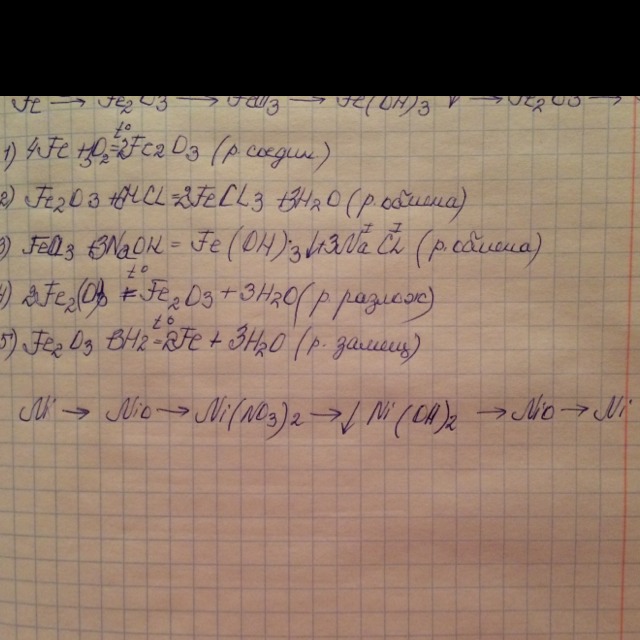 Fe → Fe2O3 → FeCl3 → Fe(OH)3 ↓ → Fe2O3 →
1) 4Fe + 3O2 =t° 2Fe2O3 (р. соедин)
2) Fe2O3 + 6HCl = 2FeCl3 + 3H2O (р. обмена)
3) FeCl3 + 3NaOH = Fe(OH)3↓ + 3Na⁺Cl⁻ (р. обмена)
4) 2Fe(OH)3 =t° Fe2O3 + 3H2O (р. разлож)
5) Fe2O3 + 3H2 =t° 2Fe + 3H2O (р. замещ)
Ni → NiO → Ni(NO3)2 → ↓ Ni(OH)2 → NiO → Ni